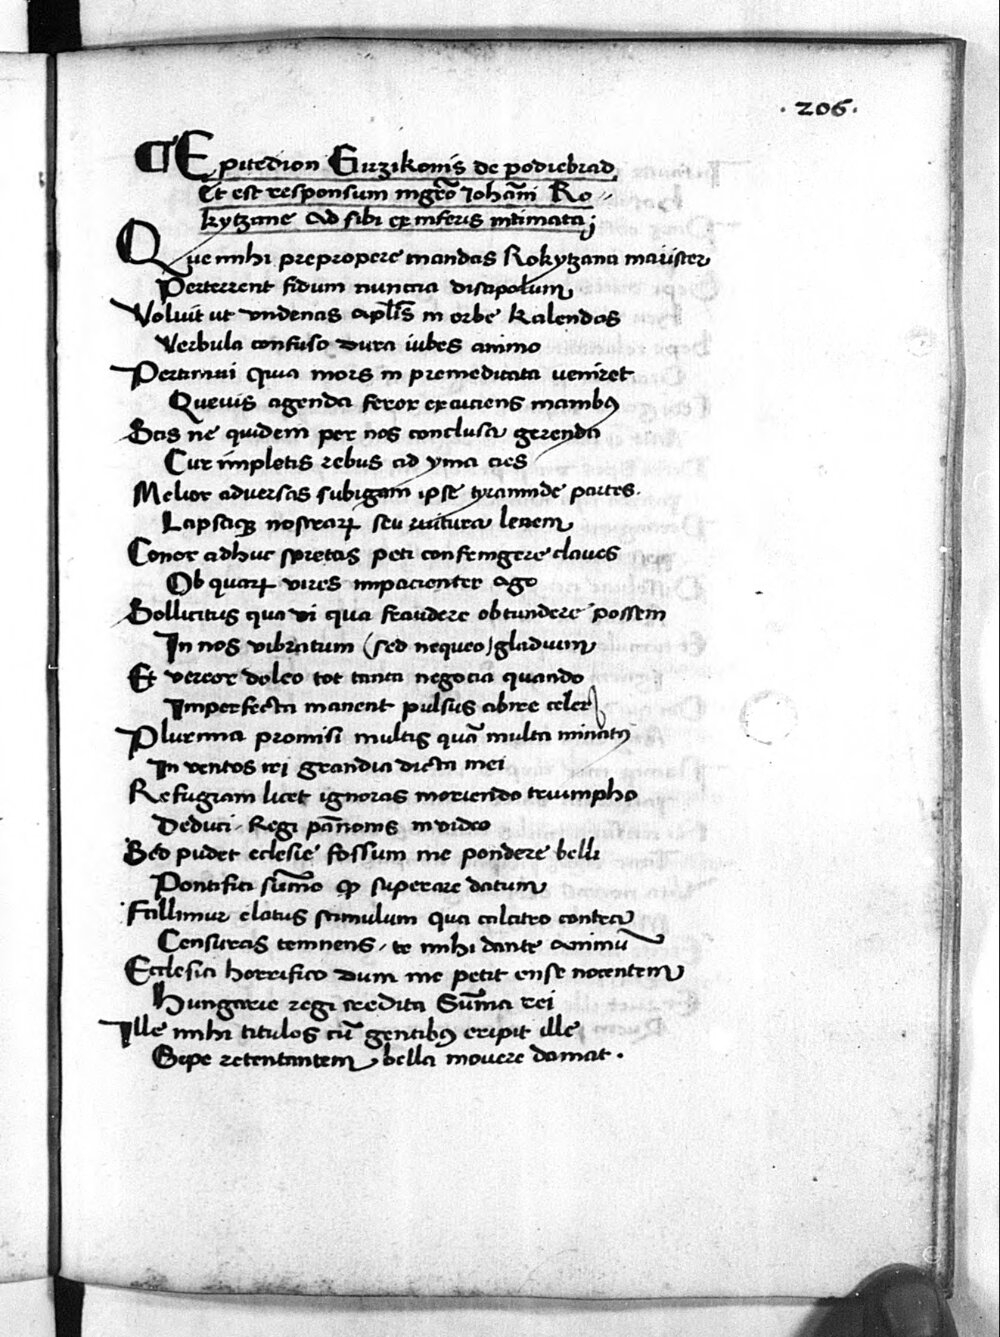 · 206 ·
Epitedion Girzikonis de podiebrad
Et est responsum mgrõ Johãni Ro-
kytzane ad sibi ex inferis intimata;
Que mihi prepropere mandas Rokytzana magister
Perterrent fidum nuncia discipolum
Voluit ut undenas aplis in orbe kalendas
Verbula confuso dura iubes animo
Pertimui quia mors inpremeditata veniret
Quevis agenda feror exauciens manibꝯ
Sas ne quidem per nos conclusa gerenda
Cur impletis rebus ad yma cies
Melior adversas subigam ipse tyrannide partes.
Lapsaqꝫ nostraꝝ seu ruitura levem
Conor adhuc spretas petri confringere claves
Ob quaꝝ vires impacienter ago
Sollicitus qua vi qua fraudere obtundere possem
In nos vibratum (sed nequeo) gladium
Et vereor doleo tot tanta negocia quando
Imperfecta manent pulsus abire celer
Plurima promisi multis quã multa minatꝯ
In ventos rei grandia dicta mei
Refugiam licet ignoras moriendo triumpho
Deduci Regi pãnonis invideo
Sed pudet eclesie fossum me pondere belli
Pontifici sũmo ꝙ superare datum
Fallimur elatus stimulum qua calcitro contra
Censuras temnens / te mihi dante animũ
Ecclesia horrifico dum me petit ense nocentem
Hungarie regi credita Sũma rei
Ille mihi titulos cũ gentibꝯ eripit ille
Sepe retentantem bella movere domat .